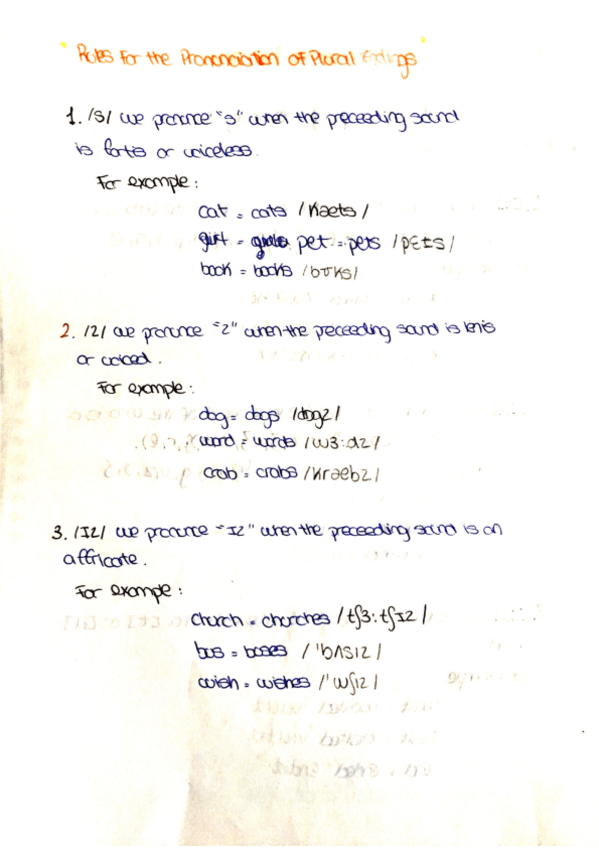 "Rules For the Pronunciation of Plural Endings"
1. /s/ we pronunce "s" when the preceeding sound
is fortis or voiceless.
For example:
cat = cats /kaets/
girl = pet = pets /pEts/
book = books /bʊks/
2. /z/ we pronunce "z" when the preceeding sound is lenis
or voiced.
For example:
dog = dogs /dogz/
word = words /wɜ:dz/
crab = crabs /kraebz/
3. /Iz/ we pronunce "Iz" when the preceeding sound is an
affricate.
For example:
church = churches /tʃɜ:tʃIz/
bus = buses /'bʌsIz/
wish = wishes /'wʃIz/